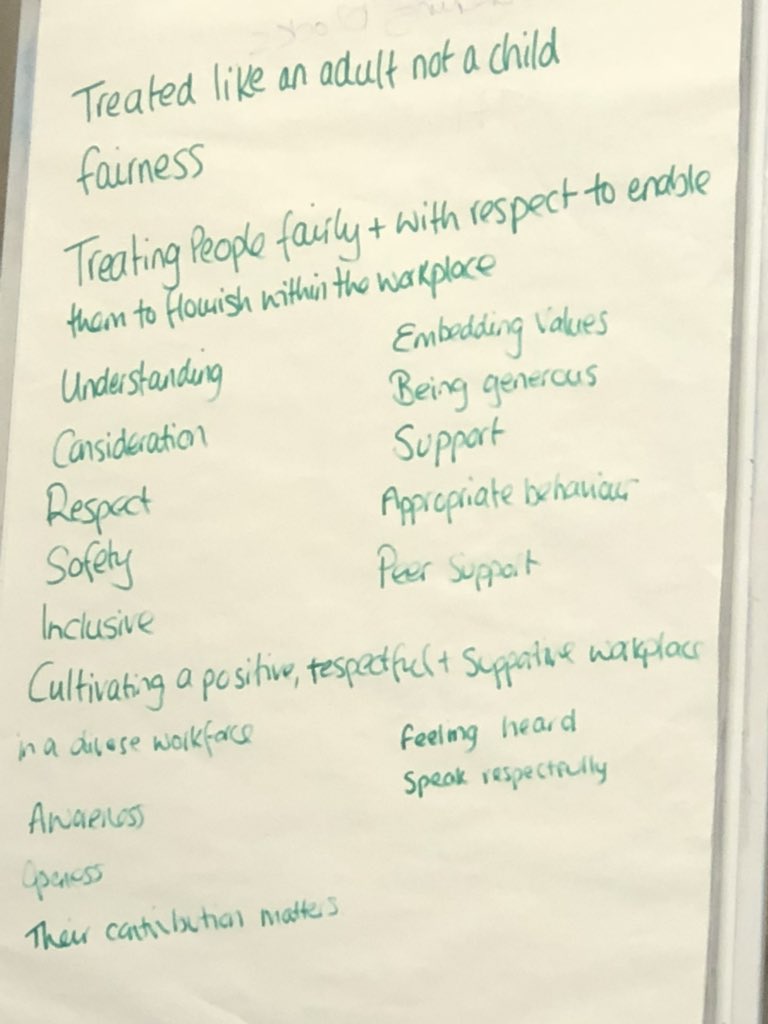 Treated like an adult not a child
fairness
Treating People fairly + with respect to enable
them to flourish within the workplace
Embedding values
Understanding
Being generous
Consideration
Support
Respect
Appropriate behaviour
Safety
Peer support
Inclusive
Cultivating a positive, respectful + supportive workplace
in a diverse workforce
Feeling heard
Speak respectfully
Awareness
Openess
Their contribution matters